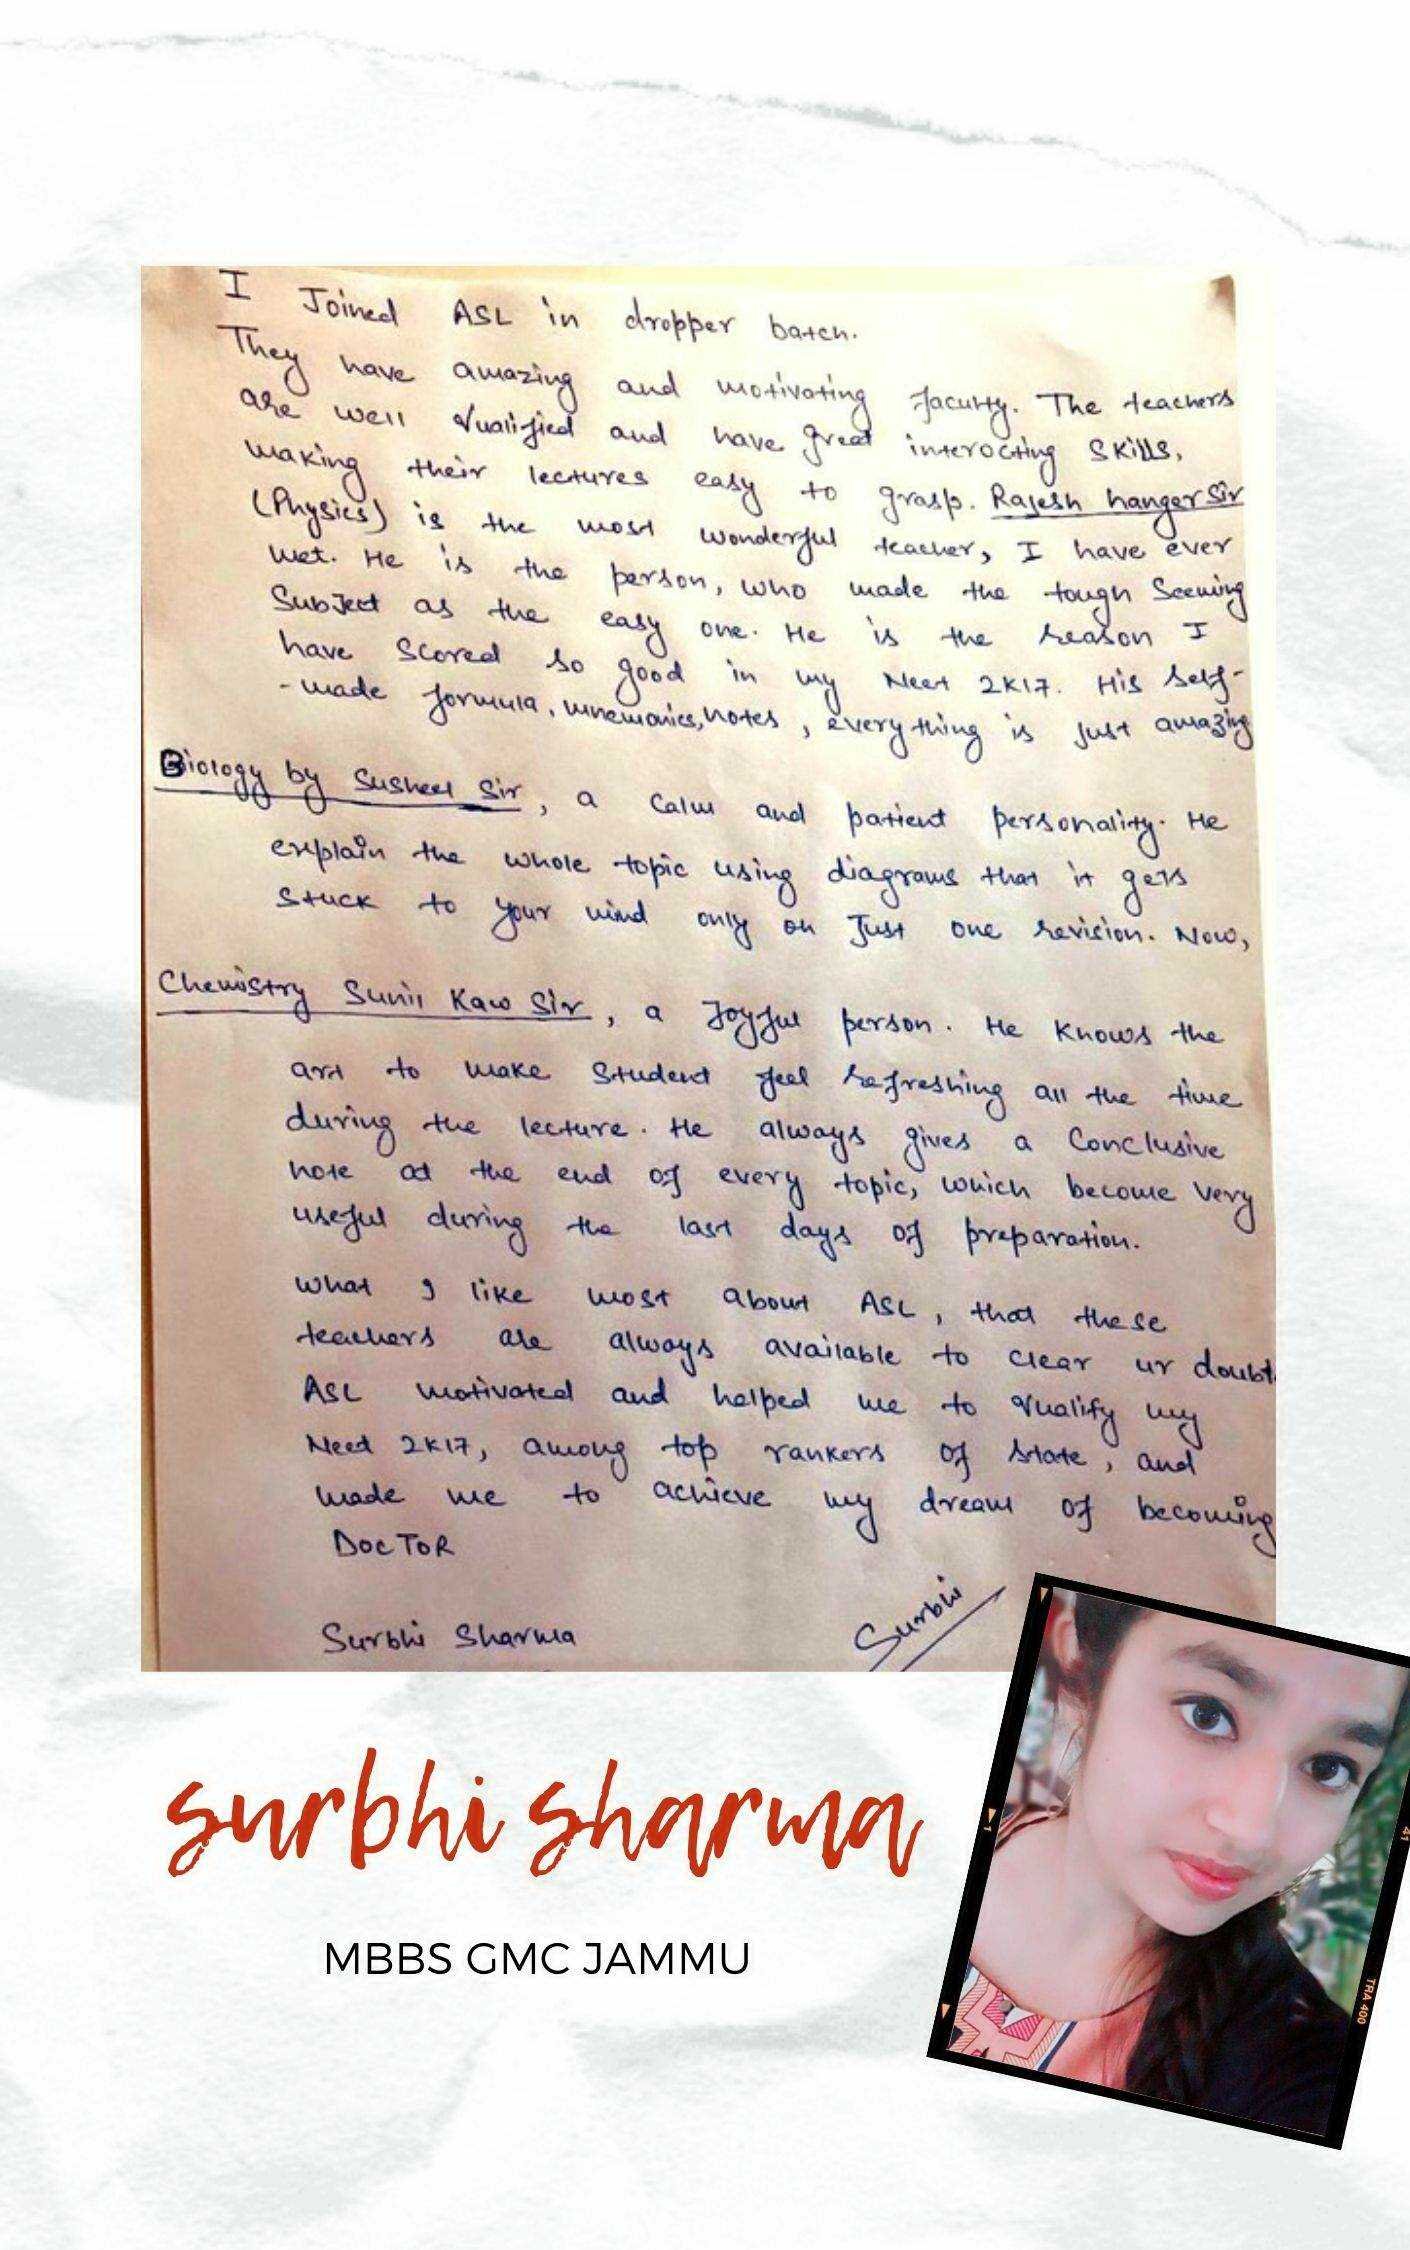 I Joined ASL in dropper batch.
They have amazing and motivating faculty. The teachers
are well qualified and have great interacting skills,
making their lectures easy to grasp. Rajesh hanger Sir
(Physics) is the most wonderful teacher, I have ever
met. He is the person, who made the tough Seeming
Subject as the easy one. He is the reason I
have Scored so good in my Neet 2K17. His self-
-made formula, mnemonics, notes, everything is just amazing
Biology by Susheel Sir, a calm and patient personality. He
explain the whole topic using diagrams that it gets
stuck to your mind only on Just one revision. Now,
Chemistry Sunil Kaw Sir, a Joyful person. He knows the
art to make student feel refreshing all the time
during the lecture. He always gives a Conclusive
note at the end of every topic, which become very
useful during the last days of preparation.
What I like most about ASL, that these
teachers are always available to clear ur doubt.
ASL motivated and helped me to qualify my
Neet 2K17, among top rankers of state, and
made me to achieve my dream of becoming
DOCTOR
Surbhi Sharma
Surbhi
surbhi sharma
MBBS GMC JAMMU
41
TRA 400